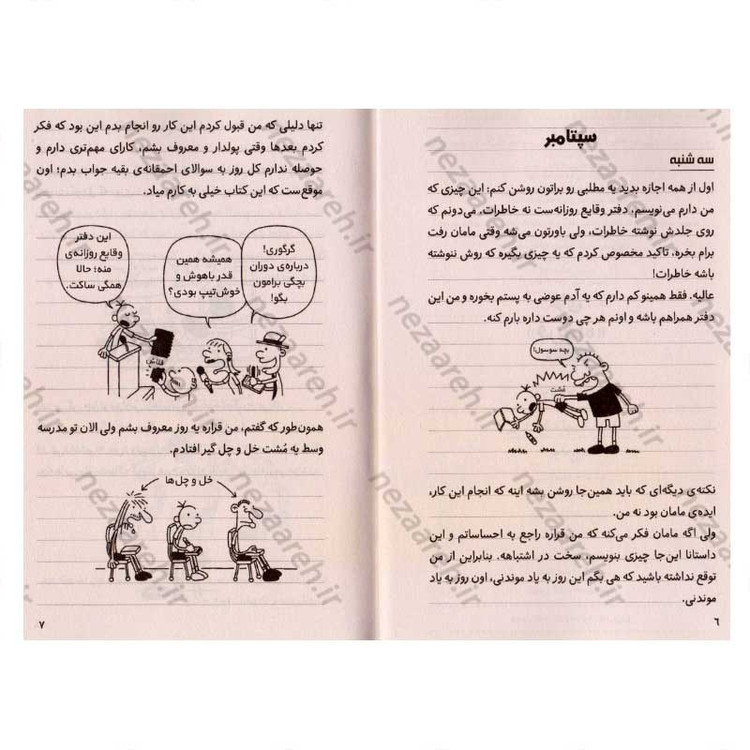 سپتامبر
سه شنبه
اول از همه اجازه بدید یه مطلبی رو براتون روشن کنم: این چیزی که
من دارم می‌نویسم، دفتر وقایع روزانه‌ست نه خاطرات. می‌دونم که
روی جلدش نوشته خاطرات، ولی باورتون می‌شه وقتی مامان رفت
برام بخره، تاکید مخصوص کردم که یه چیزی بگیره که روش ننوشته
باشه خاطرات!
عالیه. فقط همینو کم دارم که یه آدم عوضی به پستم بخوره و من این
دفتر همراهم باشه و اونم هر چی دوست داره بارم کنه.
بچه سوسول!
مُشت
نکته‌ی دیگه‌ای که باید همین‌جا روشن بشه اینه که انجام این کار،
ایده‌ی مامان بود نه من.
ولی اگه مامان فکر می‌کنه که من قراره راجع به احساساتم و این
داستانا این‌جا چیزی بنویسم، سخت در اشتباهه. بنابراین از من
توقع نداشته باشید که هی بگم این روز به یاد موندنی، اون روز به یاد
موندنی.
۶
تنها دلیلی که من قبول کردم این کار رو انجام بدم این بود که فکر
کردم بعدها وقتی پولدار و معروف بشم، کارای مهم‌تری دارم و
حوصله ندارم کل روز به سوالای احمقانه‌ی بقیه جواب بدم؛ اون
موقع‌ست که این کتاب خیلی به کارم میاد.
گرگوری!
درباره‌ی دوران
بچگی برامون
بگو!
همیشه همین
قدر باهوش و
خوش‌تیپ بودی؟
این دفتر
وقایع روزانه‌ی
منه؛ حالا
همگی ساکت.
همون‌طور که گفتم، من قراره یه روز معروف بشم ولی الان تو مدرسه
وسط یه مُشت خل و چل گیر افتادم.
خل و چل‌ها
۷
nezaareh.ir
nezaareh.ir
nezaareh.ir
nezaareh.ir
nezaareh.ir
nezaareh.ir